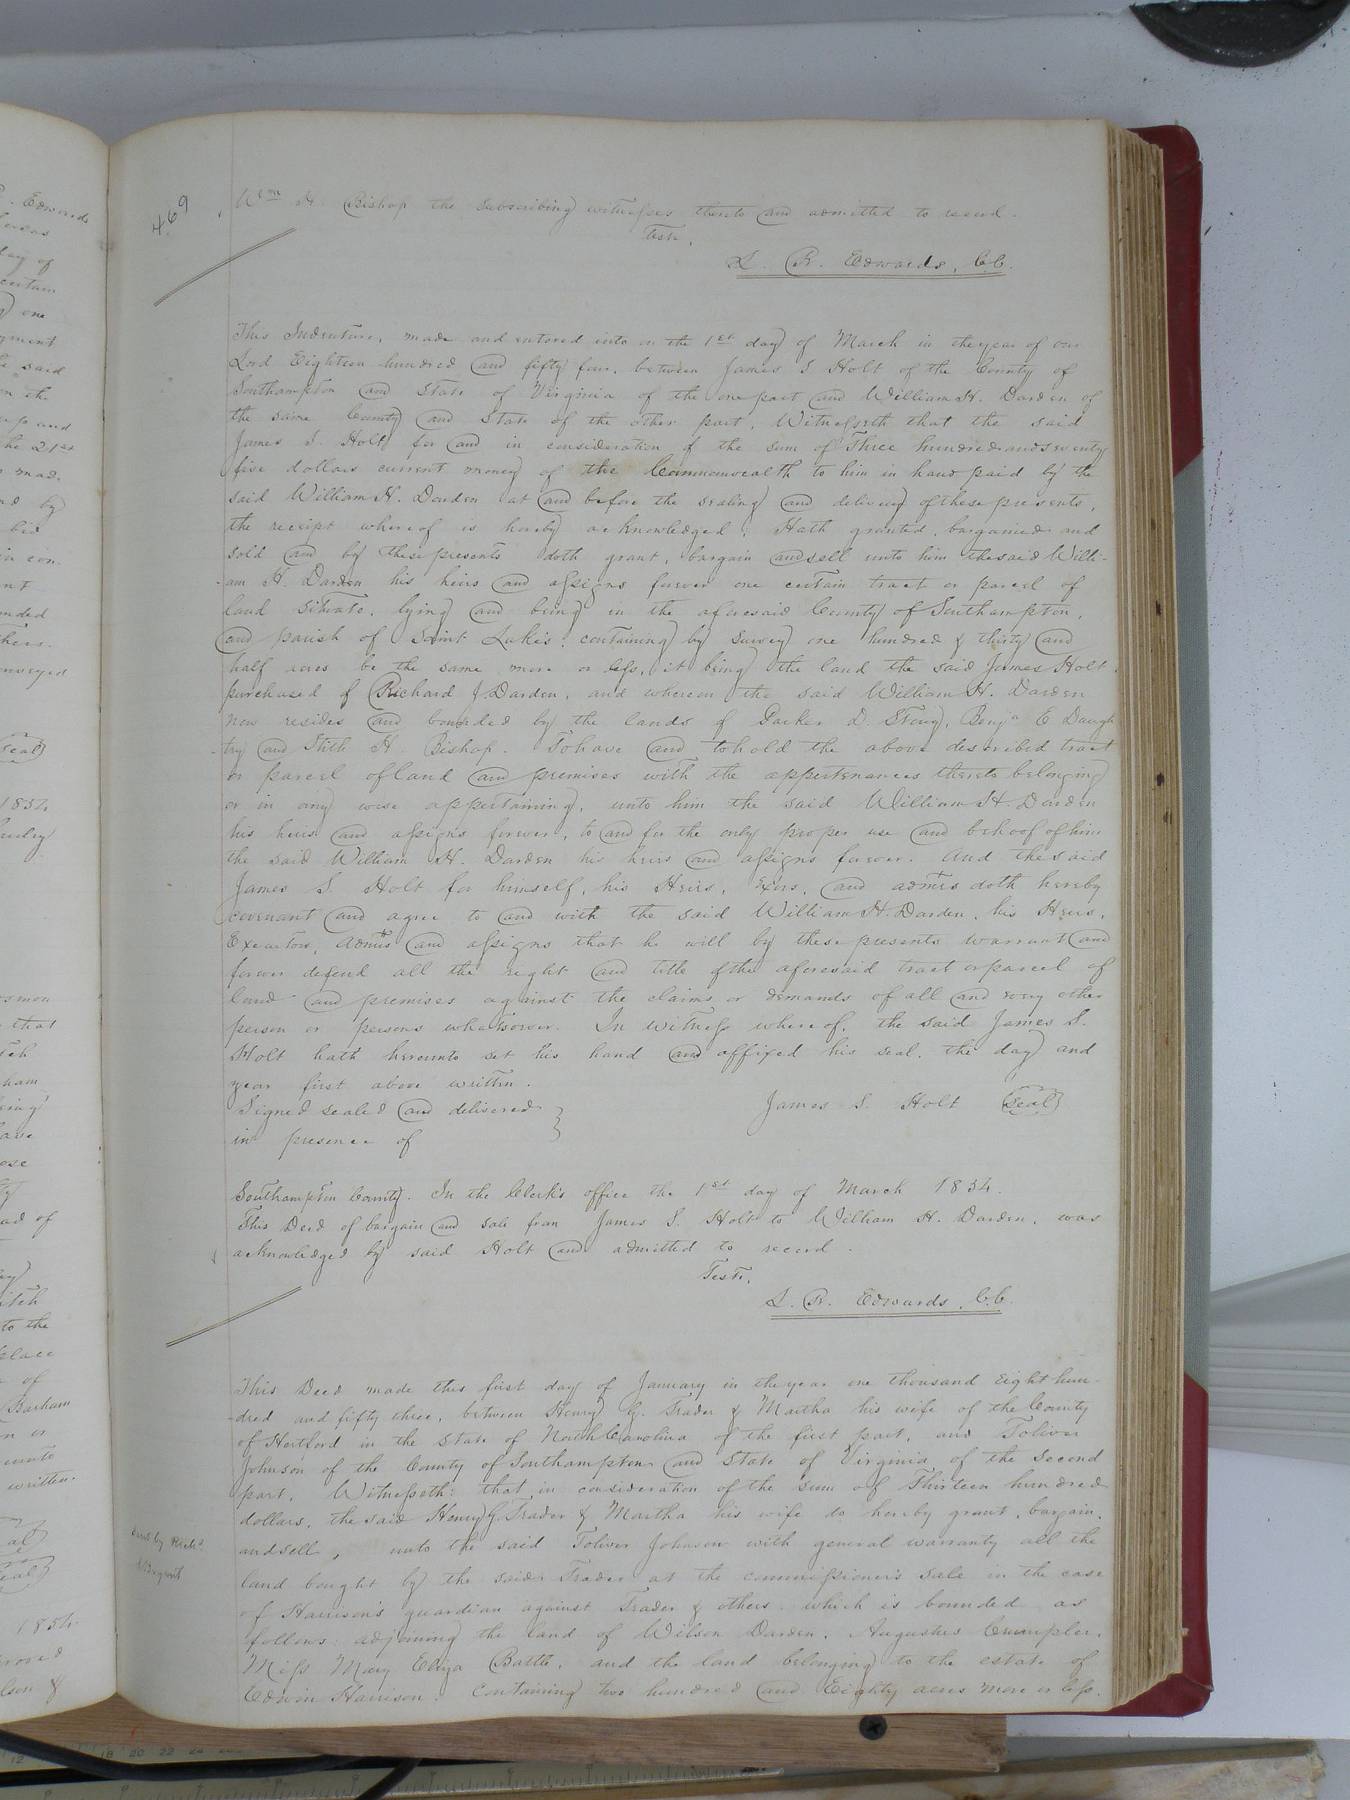 469
Wm H. Bishop the subscribing witnesses thereto and admitted to record.
Teste,
L. R. Edwards, C.C.
This Indenture, made and entered into on the 1st day of March in the year of our
Lord Eighteen hundred and fifty four, between James S Holt of the County of
Southampton and State of Virginia of the one part and William H. Darden of
the same County and State of the other part, Witnesseth that the said
James S. Holt for and in consideration of the sum of Three hundred and seventy
five dollars current money of the Commonwealth to him in hand paid by the
said William H. Darden at and before the sealing and delivery of these presents,
the receipt whereof is hereby acknowledged; Hath granted, bargained and
sold and by these presents doth grant, bargain and sell unto him the said Willi-
-am H. Darden his heirs and assigns forever one certain tract or parcel of
land situate, lying and being in the aforesaid County of Southampton,
and parish of Saint Luke's: containing by survey one hundred & thirty and
half acres be the same more or less, it being the land the said James Holt
purchased of Richard J Darden, and whereon the said William H. Darden
now resides and bounded by the lands of Parker D. Story, Benja E Daugh
-try and Stith H. Bishop. To have and to hold the above described tract
or parcel of land and premises with the appertenances thereto belonging
or in any wise appertaining, unto him the said William H Darden
his heirs and assigns forever, to and for the only proper use and behoof of him
the said William H. Darden his heirs and assigns forever. And the said
James S. Holt for himself, his Heirs, Exors, and admrs doth hereby
covenant and agree to and with the said William H. Darden, his Heirs,
Executors, Admrs and assigns that he will by these presents warrant and
forever defend all the right and title of the aforesaid tract or parcel of
land and premises against the claims or demands of all and every other
person or persons whatsoever. In witness whereof, the said James S.
Holt hath hereunto set his hand and affixed his seal, the day and
year first above written.
Signed sealed and delivered
in presence of
James S. Holt (Seal)
Southampton County. In the Clerk's office the 1st day of March 1854.
This Deed of bargain and sale from James S. Holt to William H. Darden, was
acknowledged by said Holt and admitted to record.
Teste,
L. R. Edwards, C.C.
This Deed made this first day of January in the year one thousand Eight hun-
-dred and fifty three, between Henry G. Trader & Martha his wife of the County
of Hertford in the State of North Carolina of the first part, and Toliver
Johnson of the County of Southampton and State of Virginia of the Second
part, Witnesseth: that in consideration of the sum of Thirteen hundred
dollars, the said Henry G Trader & Martha his wife do hereby grant, bargain,
and sell, unto the said Toliver Johnson with general warranty all the
land bought by the said Trader at the commissioner's sale in the case
of Harrison's guardian against Trader & others which is bounded as
follows: adjoining the land of Wilson Darden, Augustus Crumpler,
Miss Mary Eliza Battle, and the land belonging to the estate of
Edwin Harrison: containing two hundred and Eighty acres more or less.